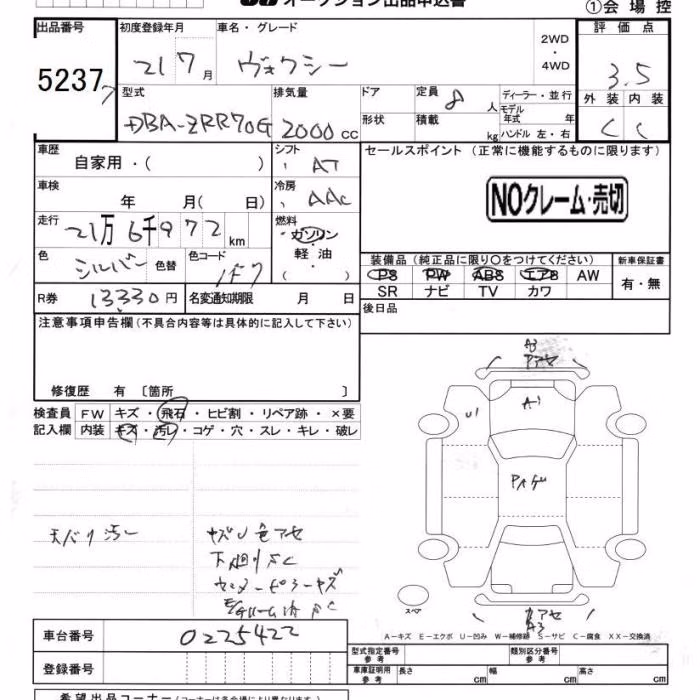 オークション出品申込書
①会場控
出品番号
5237
初度登録年月
21 7月
車名・グレード
ヴォクシー
2WD
・
4WD
評価点
3.5
外装 内装
C C
型式
DBA-ZRR70G
排気量
2000cc
ドア
形状
定員 8人
積載 kg
ディーラー・並行
モデル年式 年
ハンドル 左・右
車歴
自家用・( )
シフト
AT
車検
年 月( 日)
冷房
AAC
走行
21万6千972km
燃料
ガソリン
・
軽油
・
( )
色
シルバー 色替
色コード
1F7
R券 13330円
名変通知期限 月 日
セールスポイント(正常に機能するものに限ります)
NOクレーム・売切
装備品(純正品に限り○をつけてください)
PS PW ABS エアB AW
SR ナビ TV カワ
新車保証書
有・無
後日品
注意事項申告欄(不具合内容等は具体的に記入して下さい)
修復歴 有〔箇所 〕
検査員記入欄
FW キズ・飛石・ヒビ割・リペア跡・×要
内装 キズ・汚レ・コゲ・穴・スレ・キレ・破レ
天バリ汚レ
キズU色アセ
下廻りSC
A3
アセ
A1
U1
スペア
A3
A-キズ E-エクボ U-凹み W-補修跡 S-サビ C-腐食 XX-交換済
車台番号 0225422
登録番号
型式指定番号
参考
類別区分番号
参考
車庫証明用
参考
長さ cm
幅 cm
高さ cm
希望出品コーナー